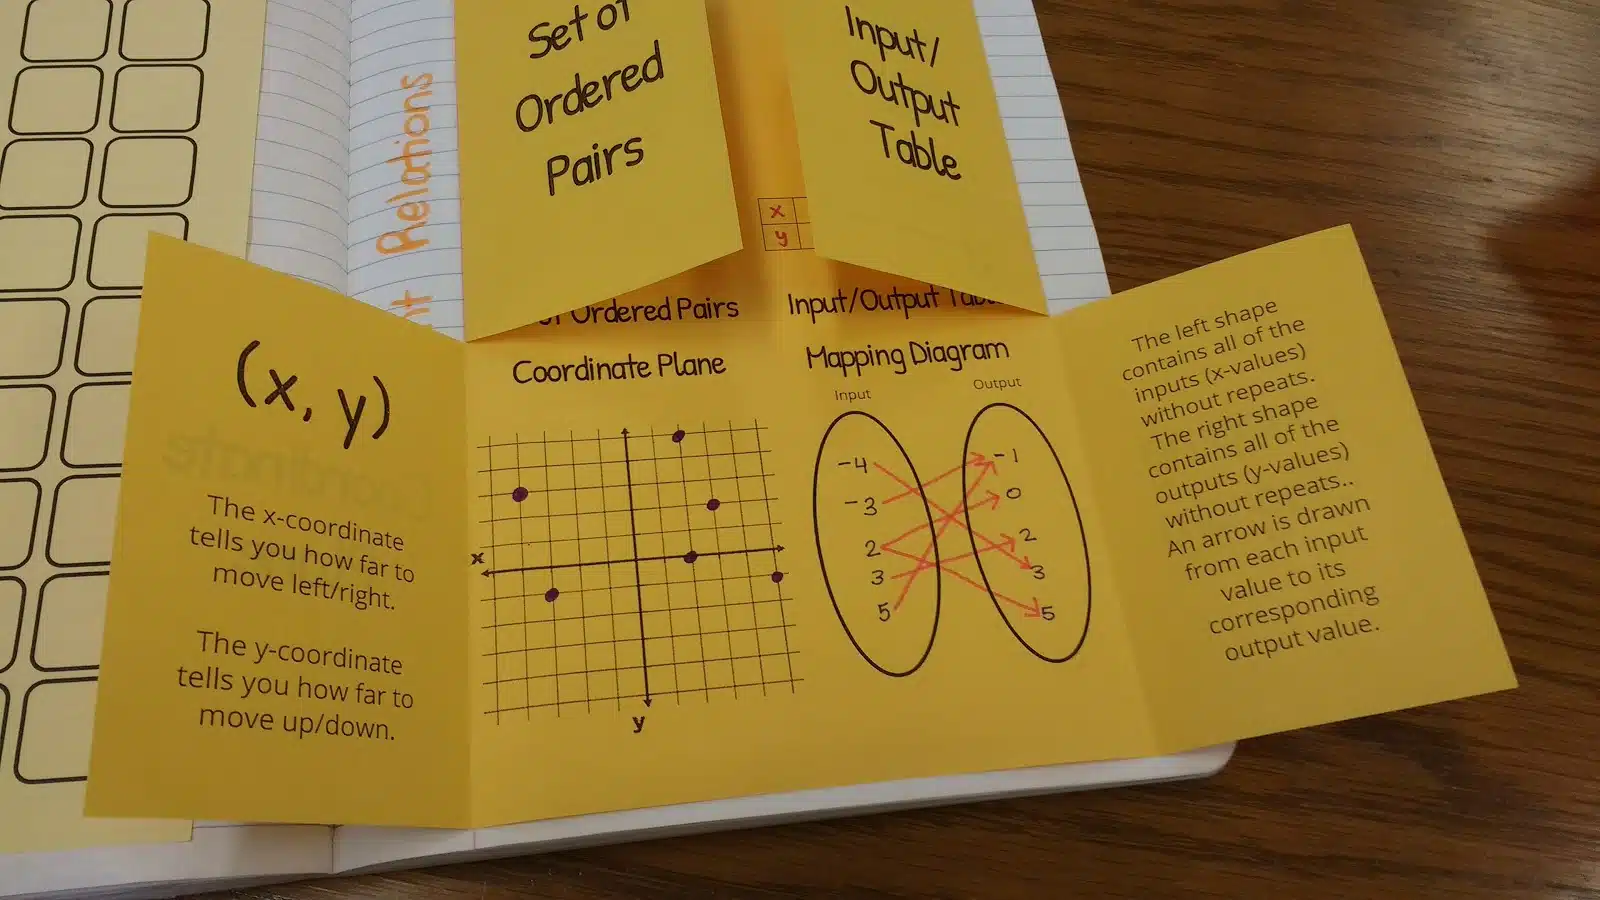 Set of
Ordered
Pairs
Input/
Output
Table
Relations
x
y
of Ordered Pairs
Input/Output Table
(x, y)
The x-coordinate
tells you how far to
move left/right.
The y-coordinate
tells you how far to
move up/down.
Coordinate Plane
x
y
Mapping Diagram
Input
Output
-4
-3
2
3
5
-1
0
2
3
5
The left shape
contains all of the
inputs (x-values)
without repeats.
The right shape
contains all of the
outputs (y-values)
without repeats..
An arrow is drawn
from each input
value to its
corresponding
output value.